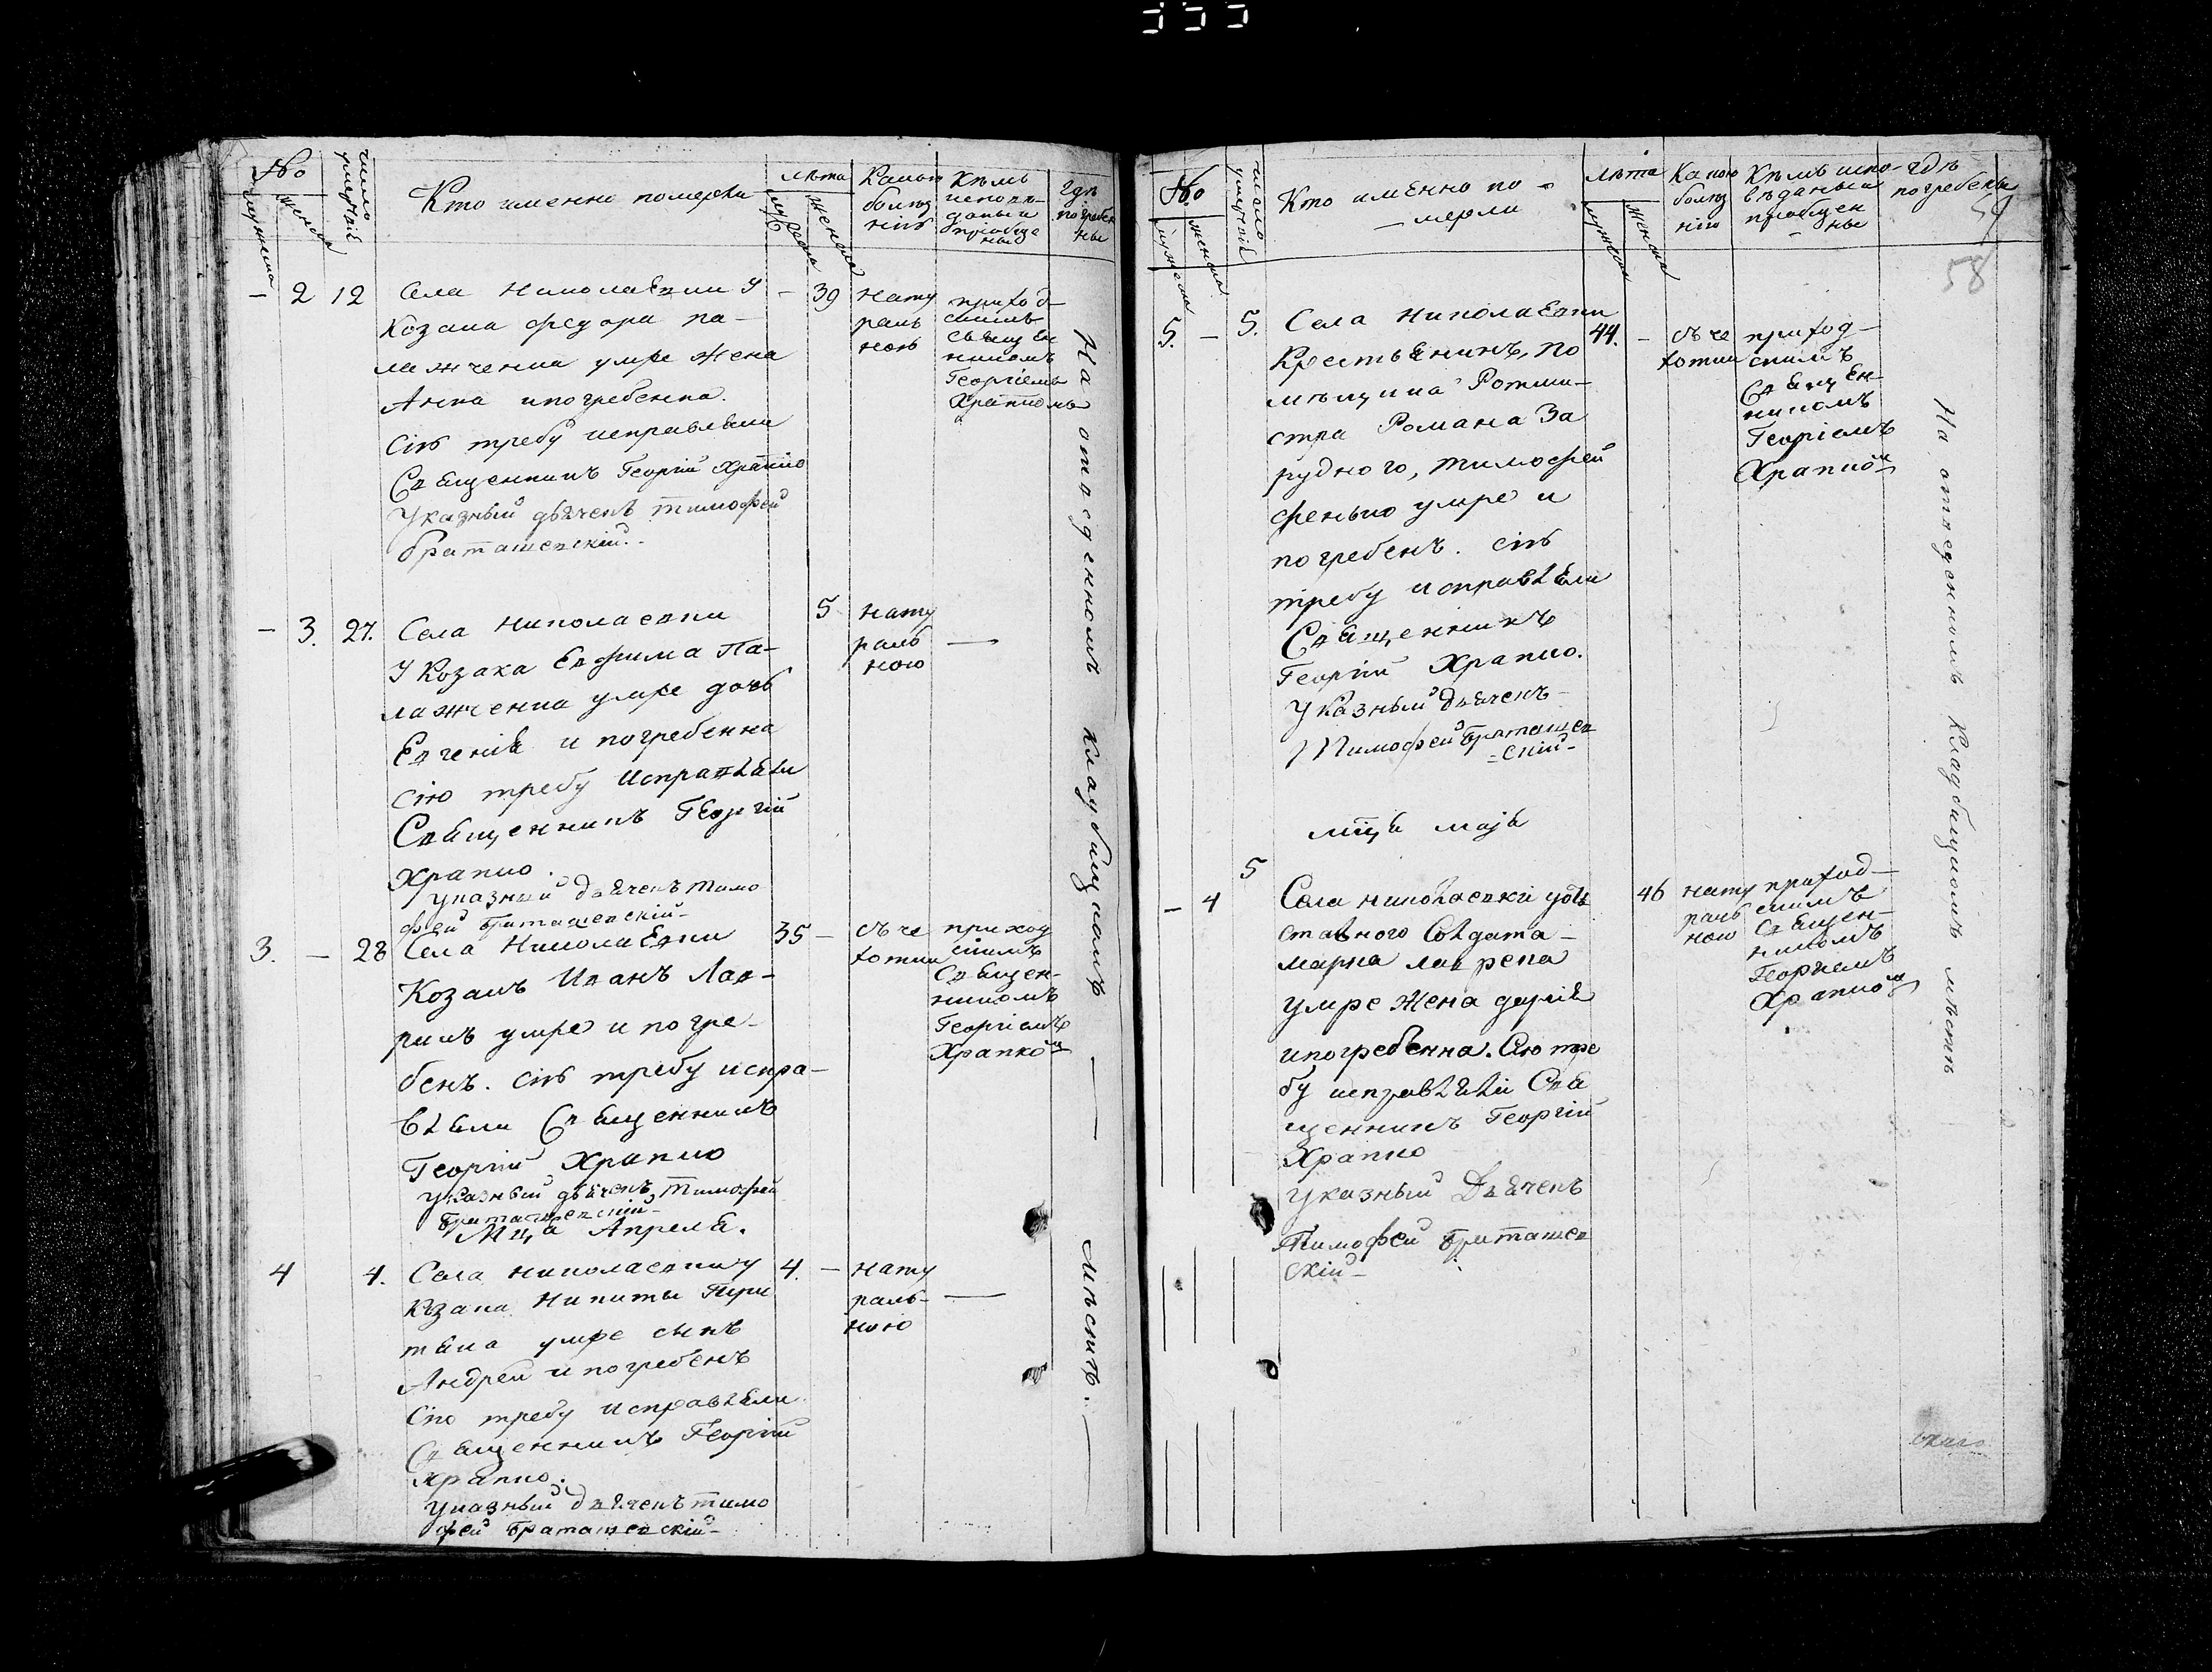 №
мужеска
женска
число умерших
Кто именно померли
лѣта
мужеска
женска
Какою
болѣз
нію
Кѣмъ
исповѣ-
даны и
приобще
ны
гдѣ
погребен
ны
- 2 12
Села Николаевки у
Козака Федора па-
лажченка умре жена
Анна ипогребенна.
Сію требу исправляли
Священникъ Георгій Храпко
Указный дьячекъ тимофей
браташевскій.-
- 39
нату
раль
ною
приход-
скимъ
Священ
никомъ
Георгіемъ
Храпкомъ
- 3. 27.
Села Николаевки
У Козака Евфима Па-
лажченка умре дочь
Евгенія и погребенна
сію требу исправляли
Священникъ Георгій
Храпко.
указный дьячекъ тимо
фей браташевскій-
5
нату
раль
ною
—
3. - 28
Села Николаевки
Козакъ Иванъ Лав-
рикъ умре и погре-
бенъ. сію требу испра-
вляли Священникъ
Георгій Храпко
указный дьячекъ тимофей
браташевскій-
35 -
съче
хотки
приход
скимъ
Священ-
никомъ
Георгіемъ
Храпкомъ
Мца Апреля.
4 4.
Села николаевки у
Козака Никиты
умре сынъ
Андрей и погребенъ
Сію требу исправляли
Священникъ Георгій
Храпко.
указный дьячекъ тимо
фей браташевскій-
4. -
нату
раль-
ною
—
На отведенномъ кладбищномъ — мѣстѣ. —
№
мужеска
женска
число умерших
Кто именно по-
- мерли
лѣта
мужеска
женска
Какою
болѣз
нію
Кѣмъ испо-
вѣданы и
приобщен
ны
гдѣ
погребены
58
5. - 5.
Села Николаевки
Крестьянинъ, по
мѣщика Ротми-
стра Романа За
рудного, тимофей
фенько умре и
погребенъ. сію
требу исправляли
Священникъ
Георгій Храпко.
Указный дьячекъ-
Тимофей браташев
-скій-
44. -
съче
хотки
приход-
скимъ
Священ-
никомъ
Георгіемъ
Храпком
мца маја
- 4 5
Села николаевки у
ставного Солдата-
марка лаврека
умре жена дарія
ипогребенна. Сію тре
бу исправляли Свя
щенникъ Георгій
Храпко
указный Дьячекъ
Тимофей браташев
скій-
46
нату
раль
ною
приход-
скимъ
Священ-
никомъ
Георгіемъ
Храпком
На отведенномъ кладбищномъ мѣстѣ